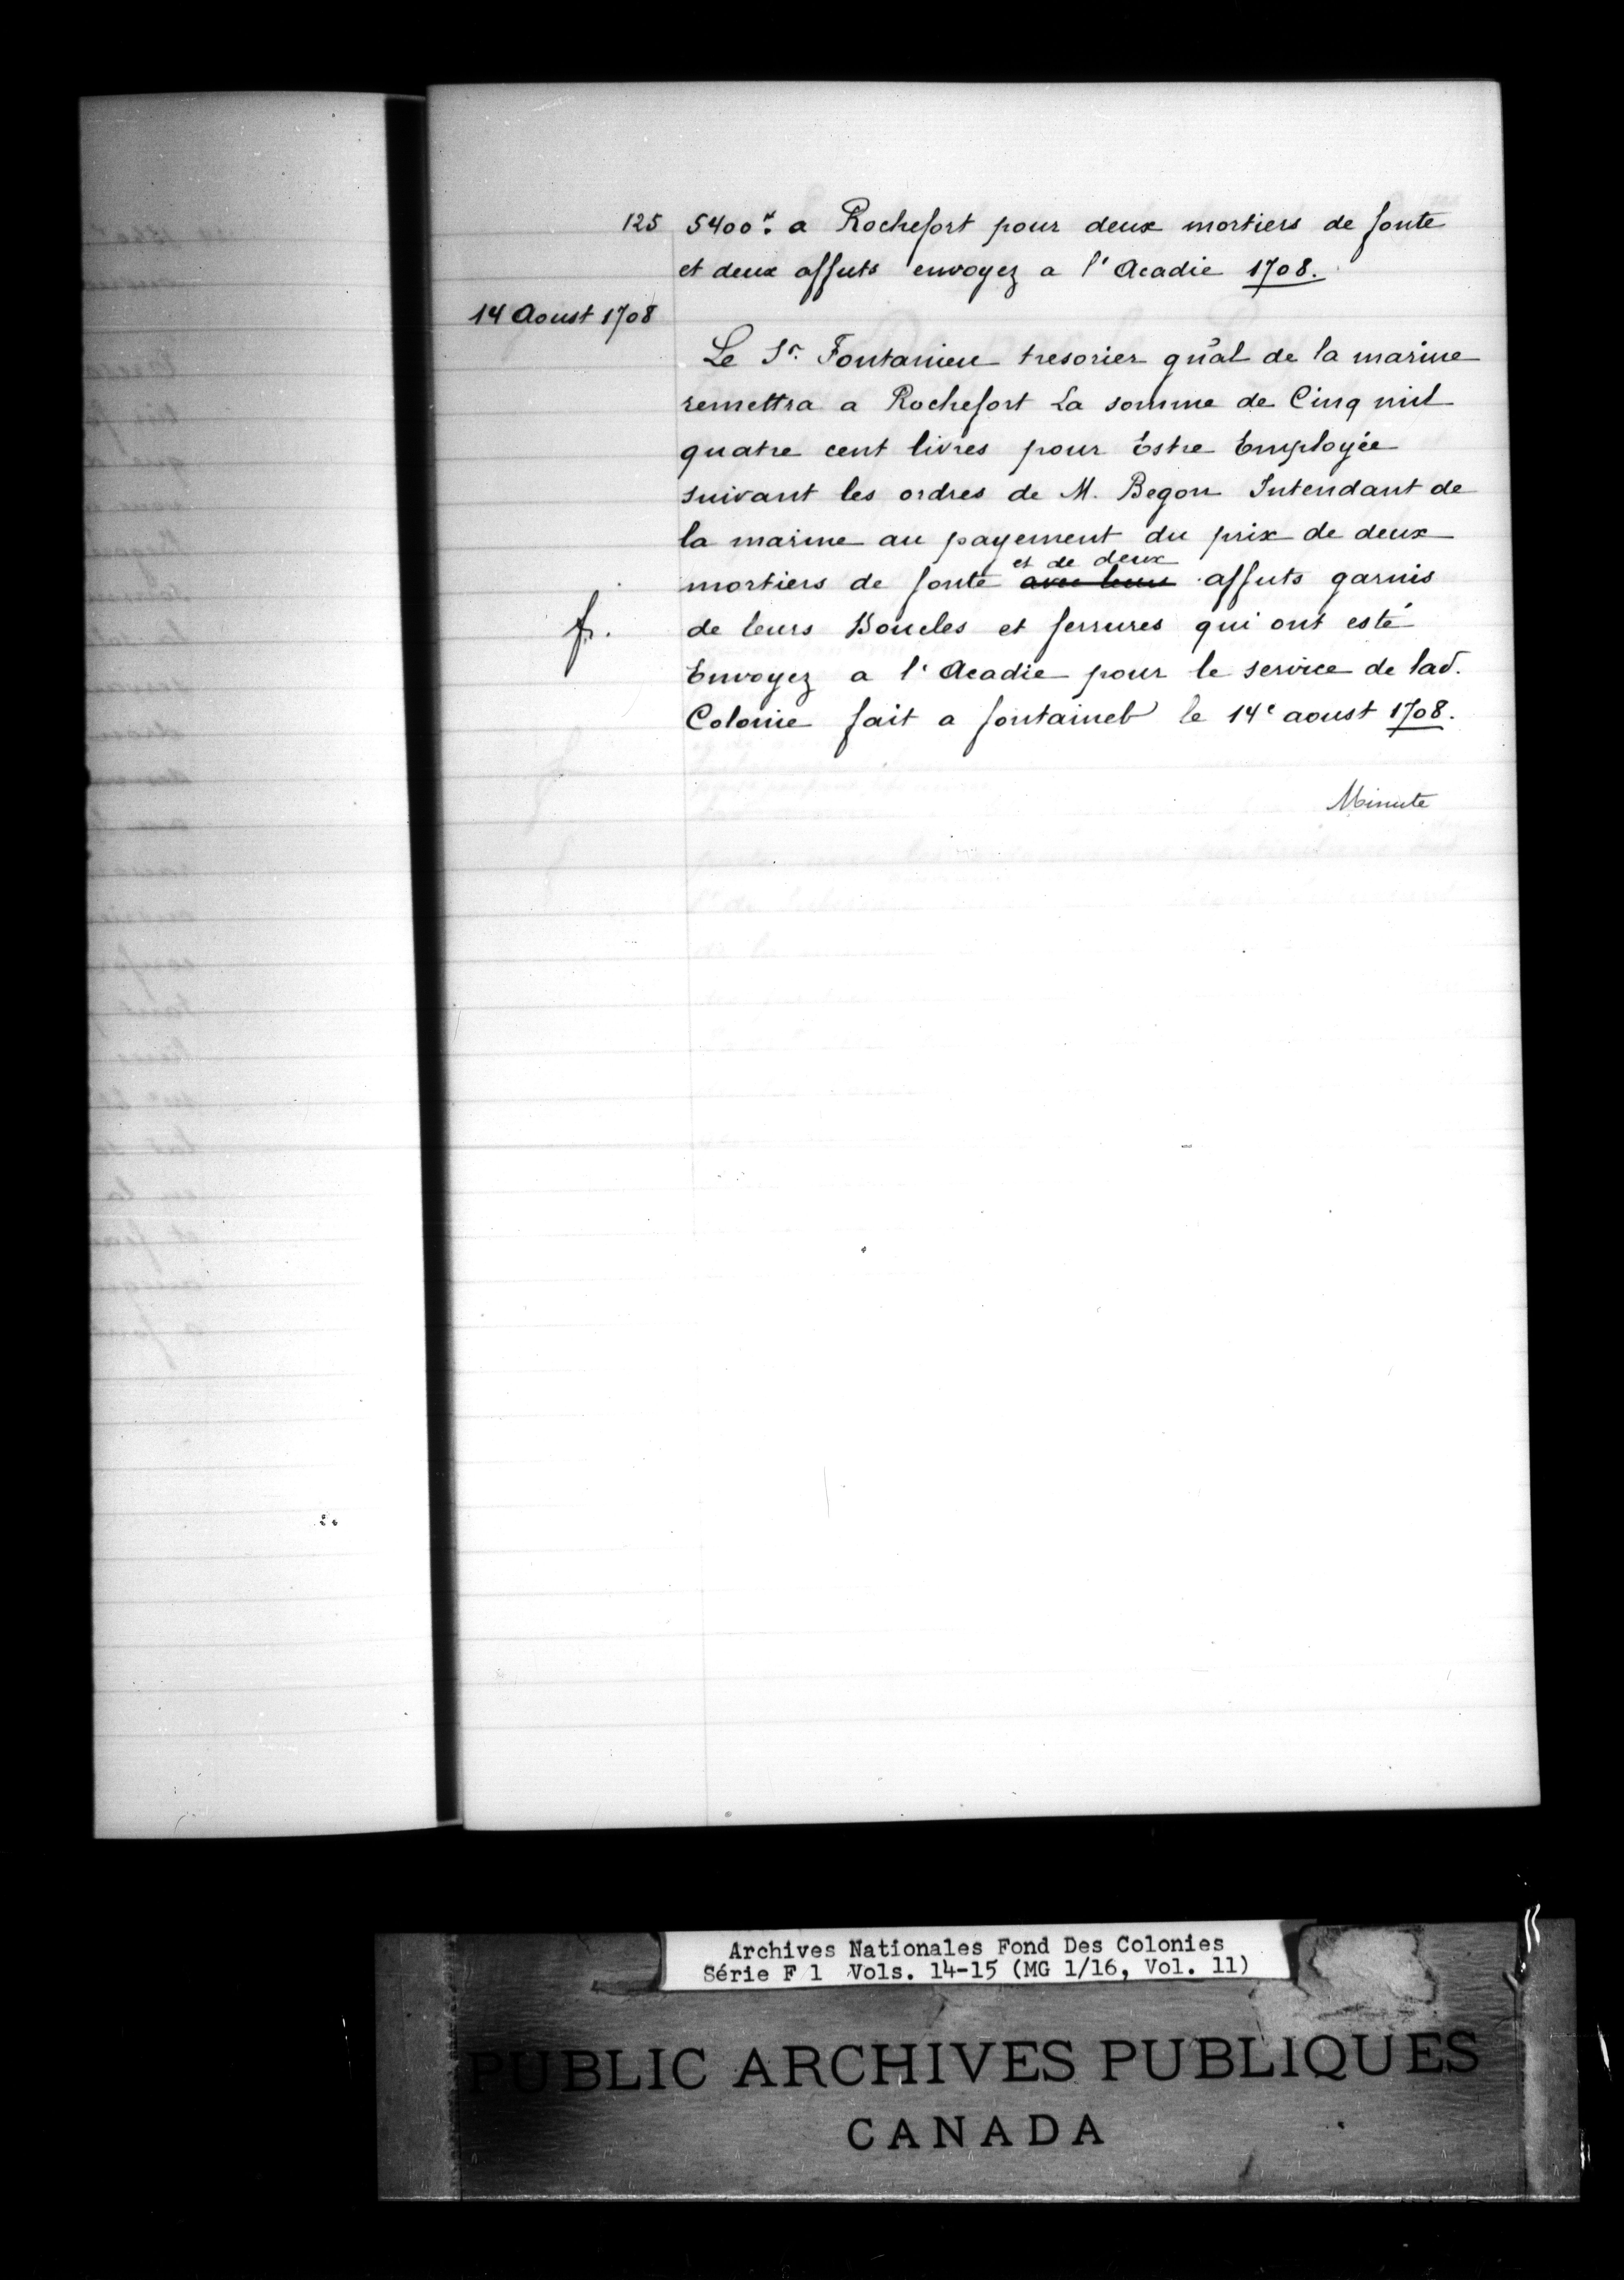 125 5400tt. a Rochefort pour deux mortiers de fonte
et deux affuts envoyez a l'Acadie 1708.
14 Aoust 1708
Le Sr. Fontanieu tresorier gñal de la marine
remettra a Rochefort La somme de Cinq mil
quatre cent livres pour Estre Employée
suivant les ordres de M. Begon Intendant de
la marine au payement du prix de deux
et de deux
mortiers de fonte avec leurs affuts garnis
fr. de leurs Boucles et ferrures qui ont esté
Envoyez a l'Acadie pour le service de lad.
Colonie fait a fontaineb le 14e aoust 1708.
Minute
Archives Nationales Fond Des Colonies
Série F 1 Vols. 14-15 (MG 1/16, Vol. 11)
PUBLIC ARCHIVES PUBLIQUES
CANADA